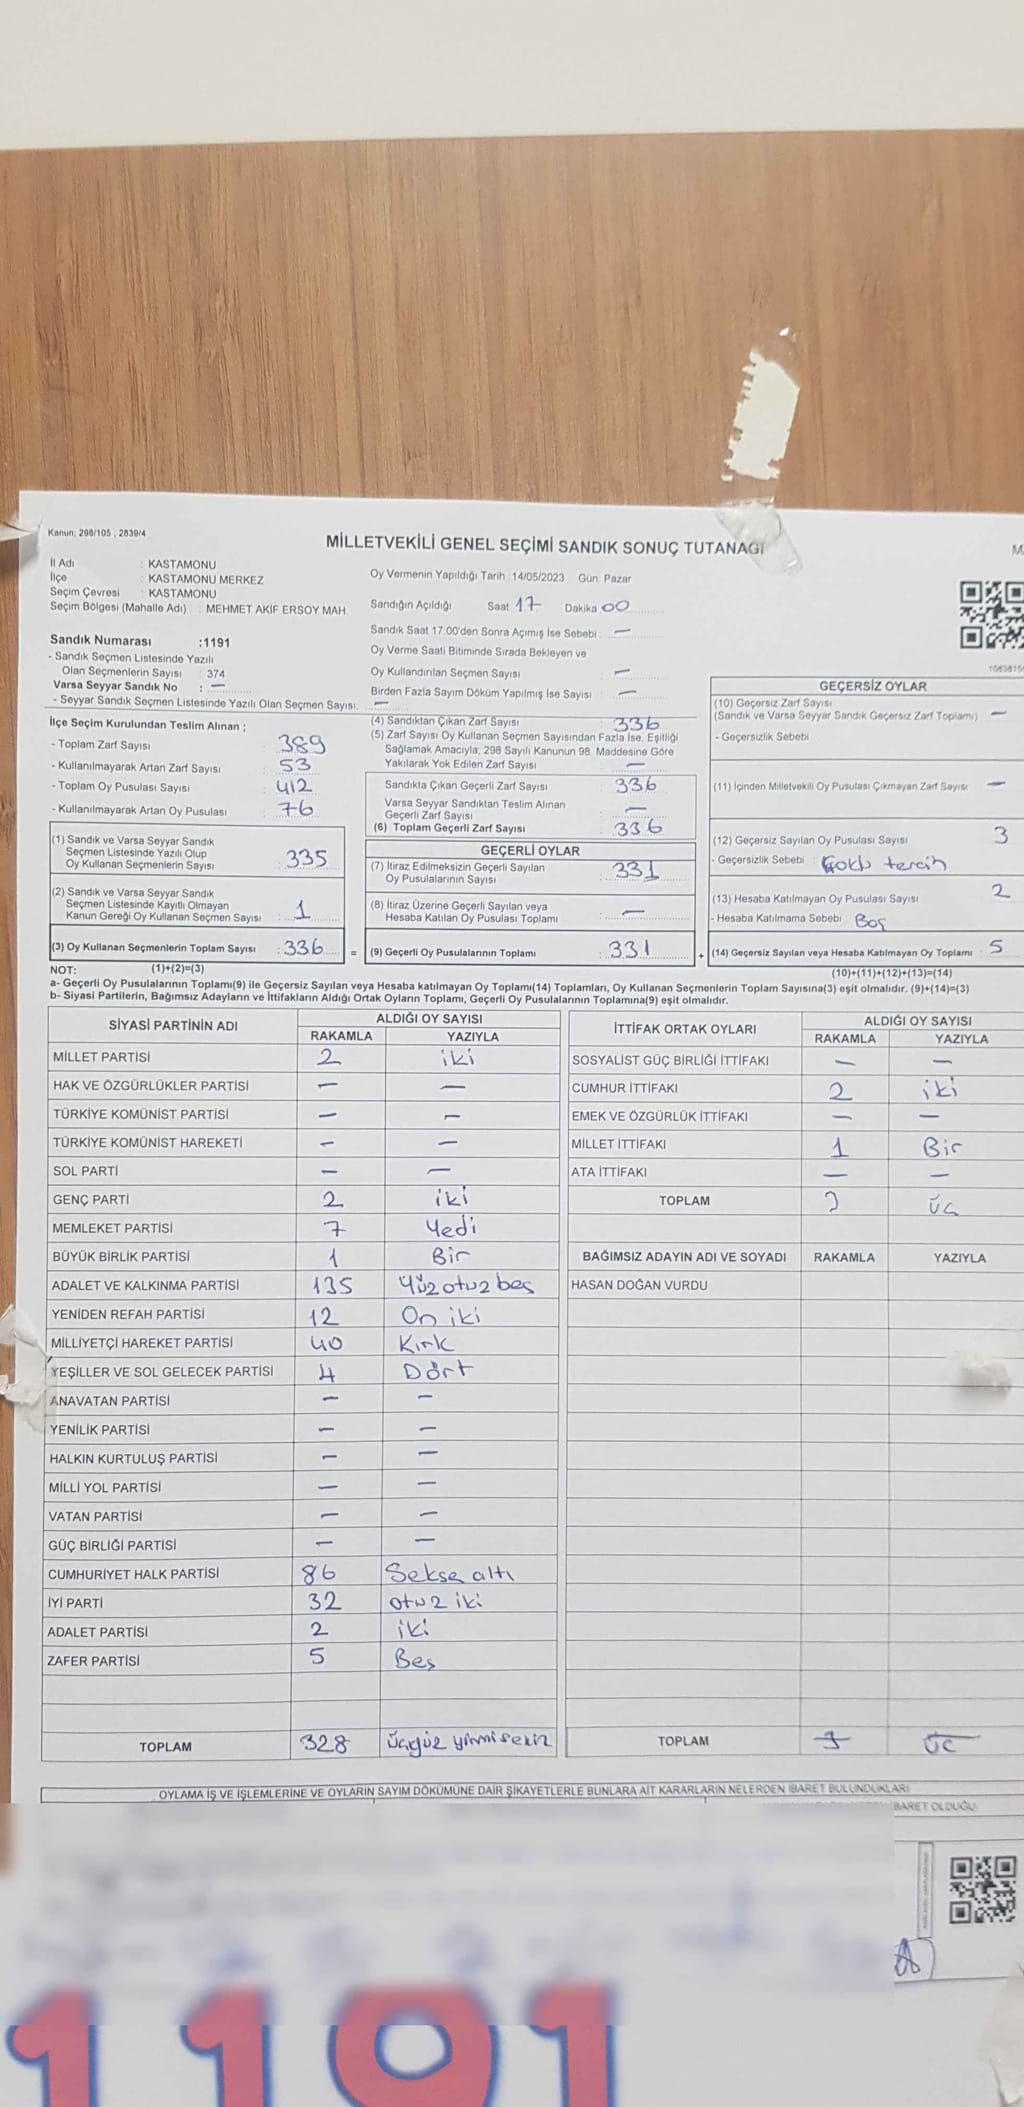 Kanun: 298/105 , 2839/4
MİLLETVEKİLİ GENEL SEÇİMİ SANDIK SONUÇ TUTANAĞI
İl Adı : KASTAMONU
İlçe : KASTAMONU MERKEZ
Seçim Çevresi : KASTAMONU
Seçim Bölgesi (Mahalle Adı) : MEHMET AKİF ERSOY MAH.
Sandık Numarası :1191
- Sandık Seçmen Listesinde Yazılı
Olan Seçmenlerin Sayısı : 374
Varsa Seyyar Sandık No : —
- Seyyar Sandık Seçmen Listesinde Yazılı Olan Seçmen Sayısı: —
Oy Vermenin Yapıldığı Tarih :14/05/2023 Gün: Pazar
Sandığın Açıldığı Saat: 17 Dakika 00
Sandık Saat 17:00'den Sonra Açımış İse Sebebi : —
Oy Verme Saati Bitiminde Sırada Bekleyen ve
Oy Kullandırılan Seçmen Sayısı : —
Birden Fazla Sayım Döküm Yapılmış İse Sayısı : —
İlçe Seçim Kurulundan Teslim Alınan ;
- Toplam Zarf Sayısı : 389
- Kullanılmayarak Artan Zarf Sayısı : 53
- Toplam Oy Pusulası Sayısı : 412
- Kullanılmayarak Artan Oy Pusulası : 76
(1) Sandık ve Varsa Seyyar Sandık
Seçmen Listesinde Yazılı Olup
Oy Kullanan Seçmenlerin Sayısı : 335
(2) Sandık ve Varsa Seyyar Sandık
Seçmen Listesinde Kayıtlı Olmayan
Kanun Gereği Oy Kullanan Seçmen Sayısı : 1
(3) Oy Kullanan Seçmenlerin Toplam Sayısı : 336 =
(1)+(2)=(3)
(4) Sandıktan Çıkan Zarf Sayısı : 336
(5) Zarf Sayısı Oy Kullanan Seçmen Sayısından Fazla İse, Eşitliği
Sağlamak Amacıyla; 298 Sayılı Kanunun 98. Maddesine Göre
Yakılarak Yok Edilen Zarf Sayısı : —
Sandıkta Çıkan Geçerli Zarf Sayısı : 336
Varsa Seyyar Sandıktan Teslim Alınan
Geçerli Zarf Sayısı : —
(6) Toplam Geçerli Zarf Sayısı : 336
GEÇERLİ OYLAR
(7) İtiraz Edilmeksizin Geçerli Sayılan
Oy Pusulalarının Sayısı : 331
(8) İtiraz Üzerine Geçerli Sayılan veya
Hesaba Katılan Oy Pusulası Toplamı : —
(9) Geçerli Oy Pusulalarının Toplamı : 331 +
GEÇERSİZ OYLAR
(10) Geçersiz Zarf Sayısı
(Sandık ve Varsa Seyyar Sandık Geçersiz Zarf Toplamı) —
- Geçersizlik Sebebi
(11) İçinden Milletvekili Oy Pusulası Çıkmayan Zarf Sayısı —
(12) Geçersiz Sayılan Oy Pusulası Sayısı 3
- Geçersizlik Sebebi : Çoklu tercih
(13) Hesaba Katılmayan Oy Pusulası Sayısı 2
- Hesaba Katılmama Sebebi : Boş
(14) Geçersiz Sayılan veya Hesaba Katılmayan Oy Toplamı : 5
(10)+(11)+(12)+(13)=(14)
NOT:
a- Geçerli Oy Pusulalarının Toplamı(9) ile Geçersiz Sayılan veya Hesaba katılmayan Oy Toplamı(14) Toplamları, Oy Kullanan Seçmenlerin Toplam Sayısına(3) eşit olmalıdır. (9)+(14)=(3)
b- Siyasi Partilerin, Bağımsız Adayların ve İttifakların Aldığı Ortak Oyların Toplamı, Geçerli Oy Pusulalarının Toplamına(9) eşit olmalıdır.
SİYASİ PARTİNİN ADI ALDIĞI OY SAYISI
RAKAMLA YAZIYLA
MİLLET PARTİSİ 2 iki
HAK VE ÖZGÜRLÜKLER PARTİSİ — —
TÜRKİYE KOMÜNİST PARTİSİ — —
TÜRKİYE KOMÜNİST HAREKETİ — —
SOL PARTİ — —
GENÇ PARTİ 2 iki
MEMLEKET PARTİSİ 7 Yedi
BÜYÜK BİRLİK PARTİSİ 1 Bir
ADALET VE KALKINMA PARTİSİ 135 Yüz otuz beş
YENİDEN REFAH PARTİSİ 12 On iki
MİLLİYETÇİ HAREKET PARTİSİ 40 Kırk
YEŞİLLER VE SOL GELECEK PARTİSİ 4 Dört
ANAVATAN PARTİSİ — —
YENİLİK PARTİSİ — —
HALKIN KURTULUŞ PARTİSİ — —
MİLLİ YOL PARTİSİ — —
VATAN PARTİSİ — —
GÜÇ BİRLİĞİ PARTİSİ — —
CUMHURİYET HALK PARTİSİ 86 Seksen altı
İYİ PARTİ 32 otuz iki
ADALET PARTİSİ 2 iki
ZAFER PARTİSİ 5 Beş
TOPLAM 328 üçyüz yirmi sekiz
İTTİFAK ORTAK OYLARI ALDIĞI OY SAYISI
RAKAMLA YAZIYLA
SOSYALİST GÜÇ BİRLİĞİ İTTİFAKI — —
CUMHUR İTTİFAKI 2 iki
EMEK VE ÖZGÜRLÜK İTTİFAKI — —
MİLLET İTTİFAKI 1 Bir
ATA İTTİFAKI — —
TOPLAM 3 üç
BAĞIMSIZ ADAYIN ADI VE SOYADI RAKAMLA YAZIYLA
HASAN DOĞAN VURDU
TOPLAM üç
OYLAMA İŞ VE İŞLEMLERİNE VE OYLARIN SAYIM DÖKÜMÜNE DAİR ŞİKAYETLERLE BUNLARA AİT KARARLARIN NELERDEN İBARET BULUNDUKLARI
BARET OLDUĞU
1191